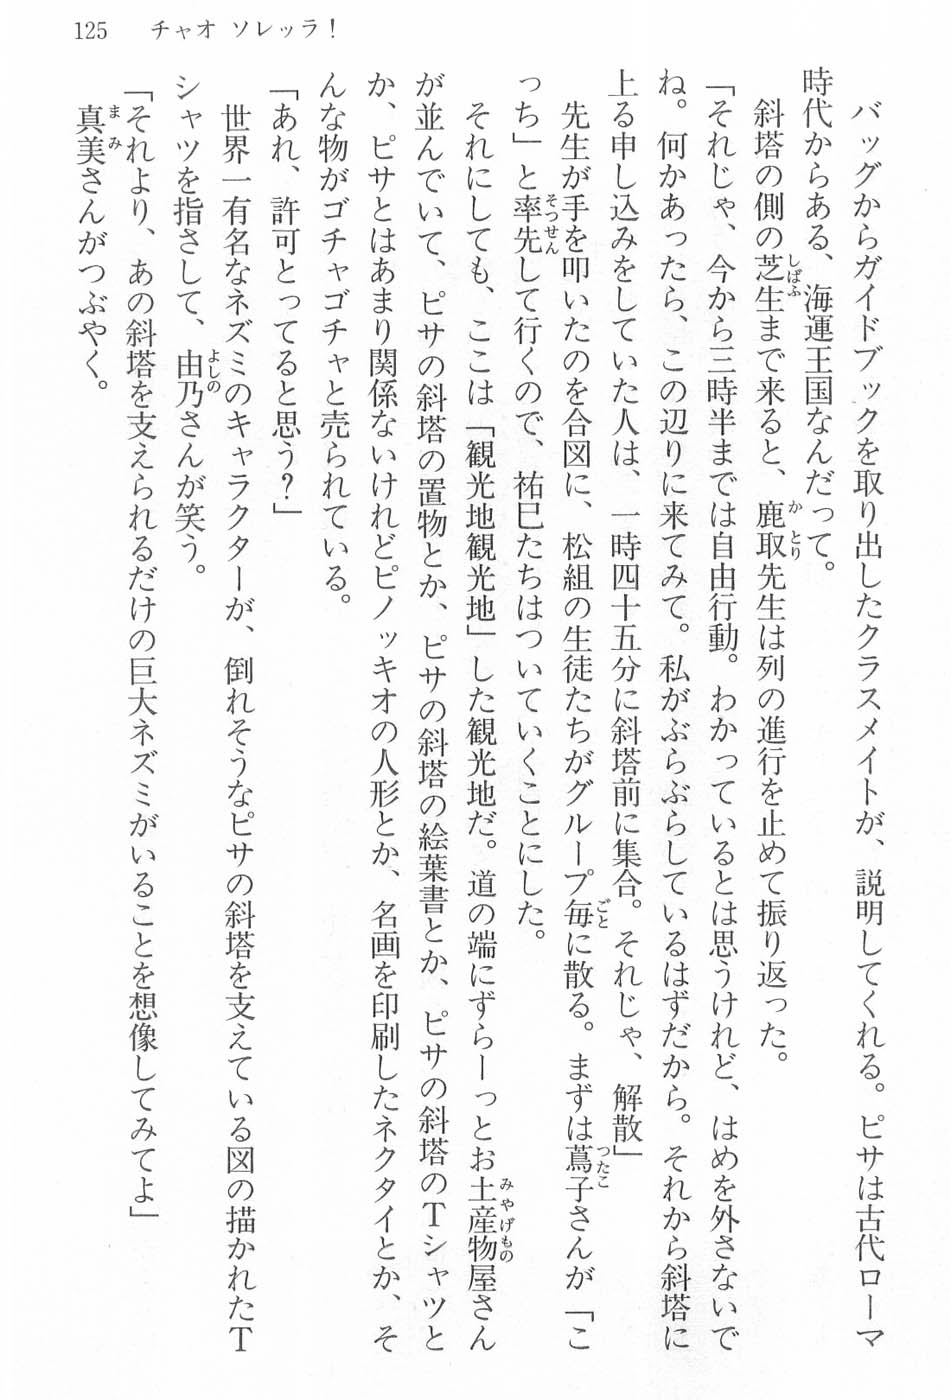 125　チャオ ソレッラ！
　バッグからガイドブックを取り出したクラスメイトが、説明してくれる。ピサは古代ローマ
時代からある、海運王国なんだって。
　斜塔の側の芝生まで来ると、鹿取先生は列の進行を止めて振り返った。
「それじゃ、今から三時半までは自由行動。わかっているとは思うけれど、はめを外さないで
ね。何かあったら、この辺りに来てみて。私がぶらぶらしているはずだから。それから斜塔に
上る申し込みをしていた人は、一時四十五分に斜塔前に集合。それじゃ、解散」
　先生が手を叩いたのを合図に、松組の生徒たちがグループ毎に散る。まずは蔦子さんが「こ
っち」と率先して行くので、祐巳たちはついていくことにした。
　それにしても、ここは「観光地観光地」した観光地だ。道の端にずらーっとお土産物屋さん
が並んでいて、ピサの斜塔の置物とか、ピサの斜塔の絵葉書とか、ピサの斜塔のTシャツと
か、ピサとはあまり関係ないけれどピノッキオの人形とか、名画を印刷したネクタイとか、そ
んな物がゴチャゴチャと売られている。
「あれ、許可とってると思う？」
　世界一有名なネズミのキャラクターが、倒れそうなピサの斜塔を支えている図の描かれたT
シャツを指さして、由乃さんが笑う。
「それより、あの斜塔を支えられるだけの巨大ネズミがいることを想像してみてよ」
　真美さんがつぶやく。